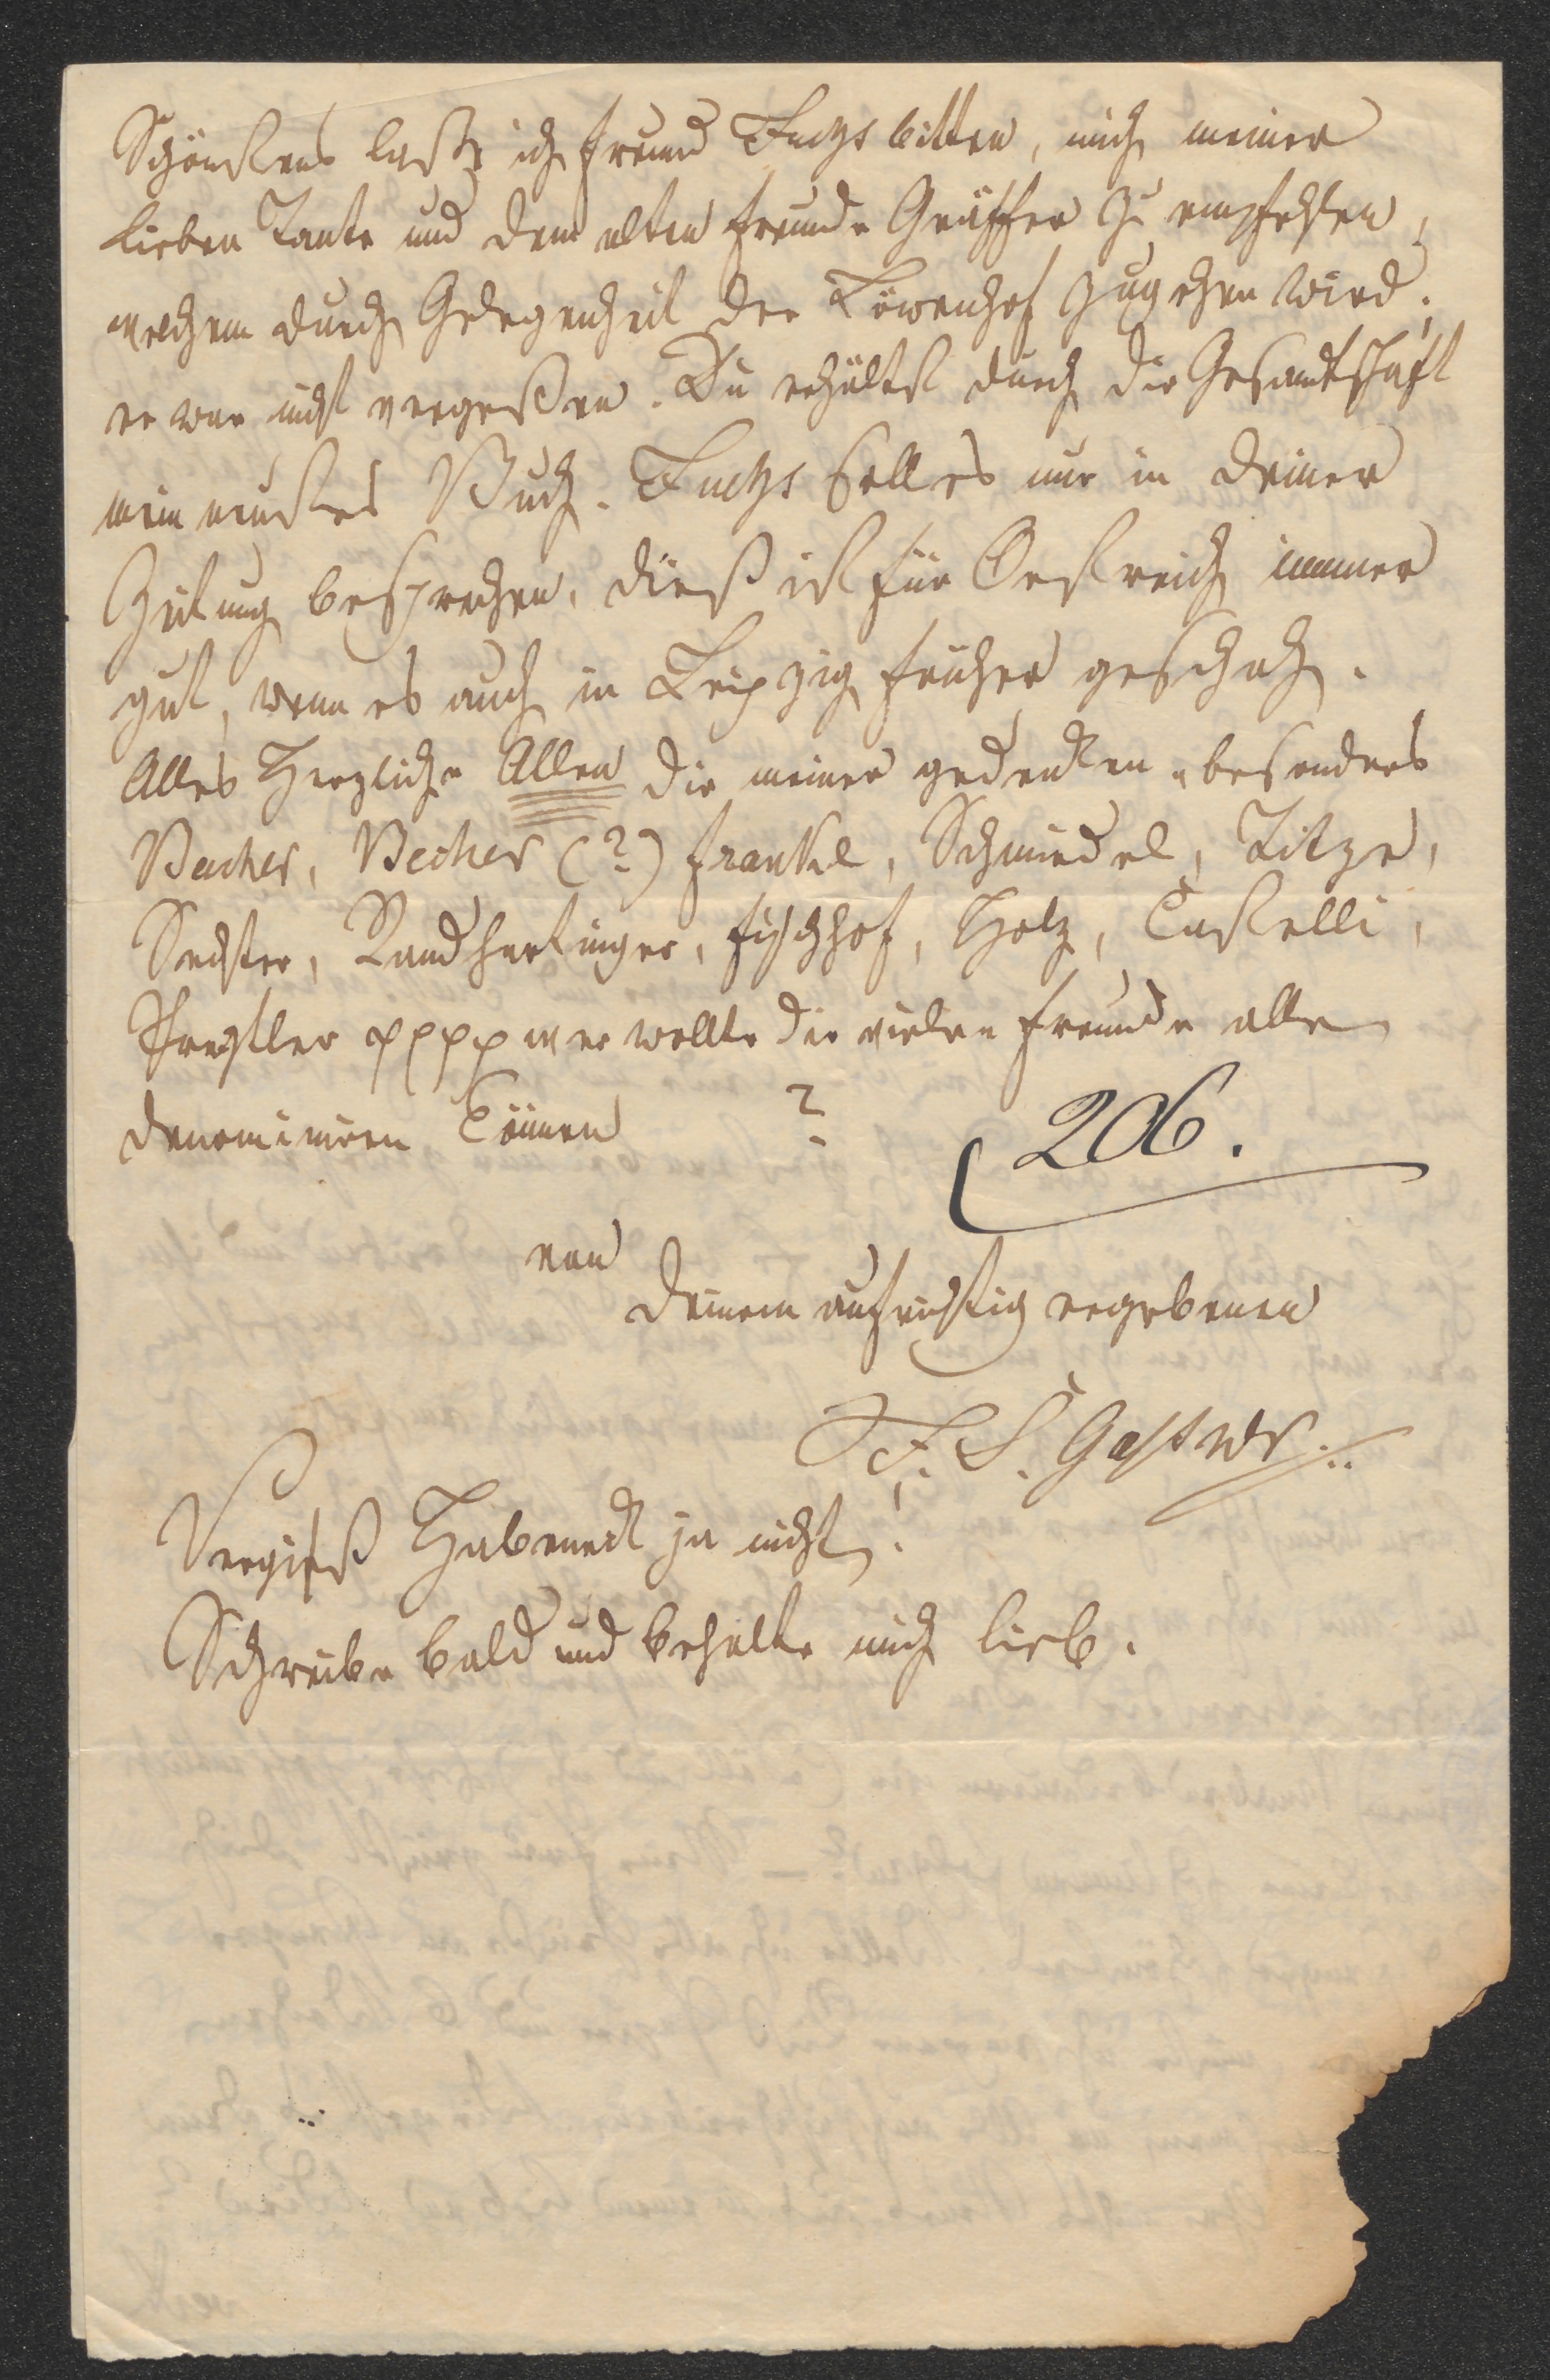 Schönstens laße ich Freund Fuchs bitten, mich meiner
lieben Tante und dem alten Freunde Gräffer zu empfehlen,
welchem durch Gelegenheit der Löwenhof zugehen wird;
er war nicht vergeßen. Du erhältst durch die Gesandtschaft
mein neustes Buch. Fuchs soll es nur in Deiner
Zeitung besprechen, dieß ist für Oestreich immer
gut, wenn es auch in Leipzig früher geschah.
Alles Herzliche Allen die meiner gedenken, besonders
Bacher, Becher (?) Frankl, Schmiedel, Titze,
Sechter, Randhartinger, Fischhof, Holz, Castelli,
wer wollte die vielen Freunde alle
denominiren können ?
206.
von
Deinem aufrichtig ergebenen
F. S. Gaßner
Vergiß Habeneck ja nicht!
Schreibe bald und behalte mich lieb.